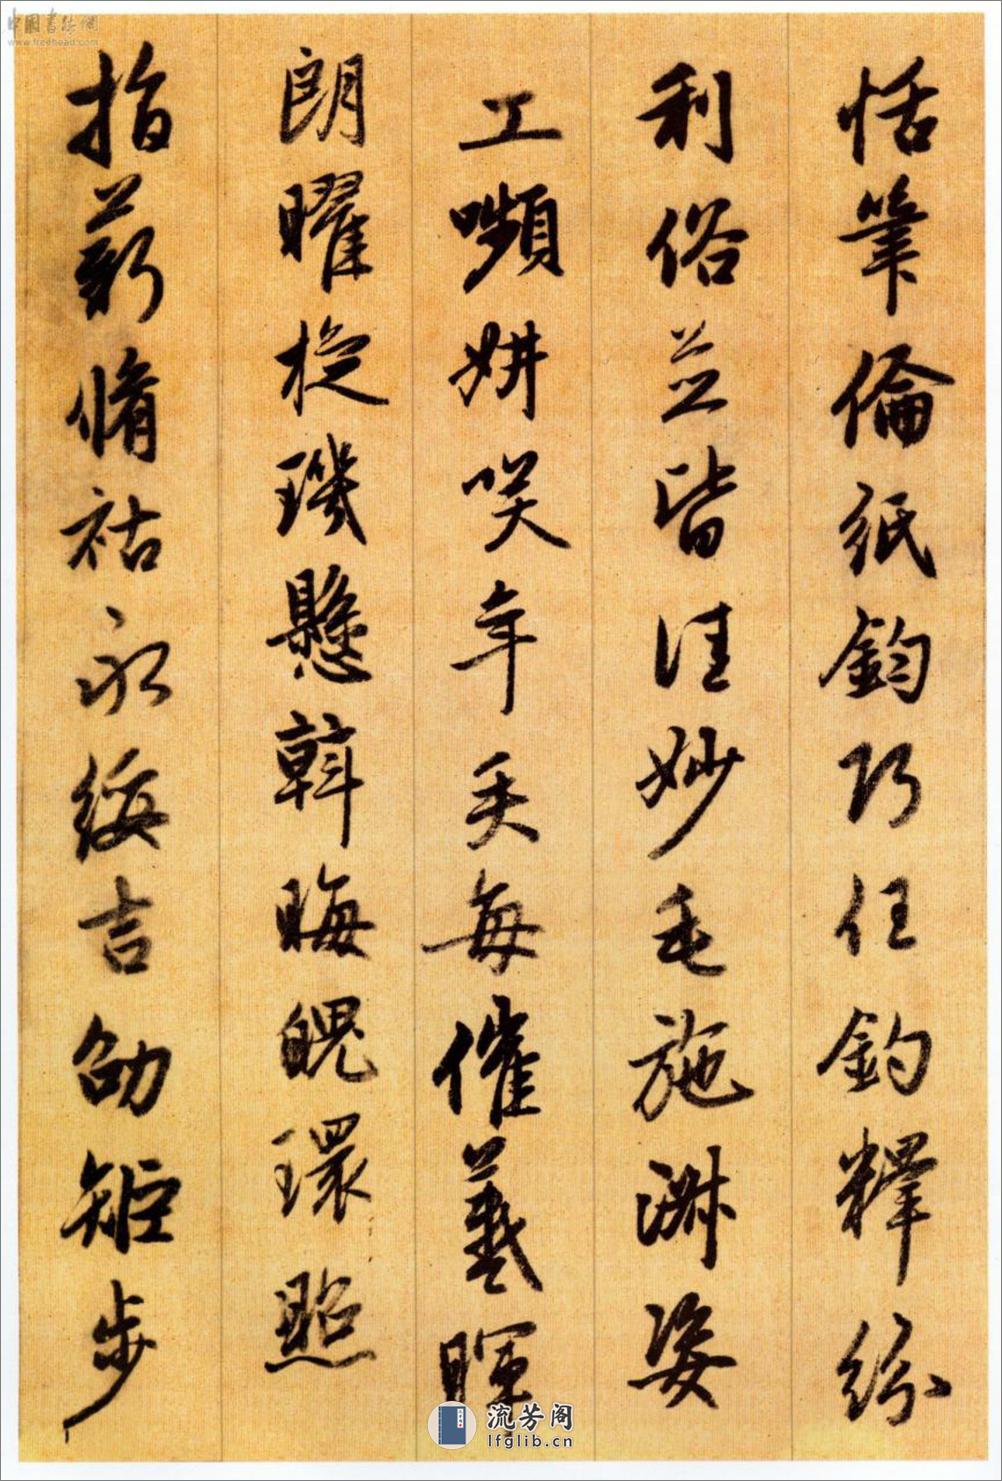 恬筆倫紙鈞巧任釣釋紛
利俗並皆佳妙毛施淑姿
工嚬妍咲年矢每催羲暉
朗曜旋璣懸斡晦魄環照
指薪脩祜永綏吉劭矩步
中國書法網
www.freehead.com
流芳阁
lfglib.cn